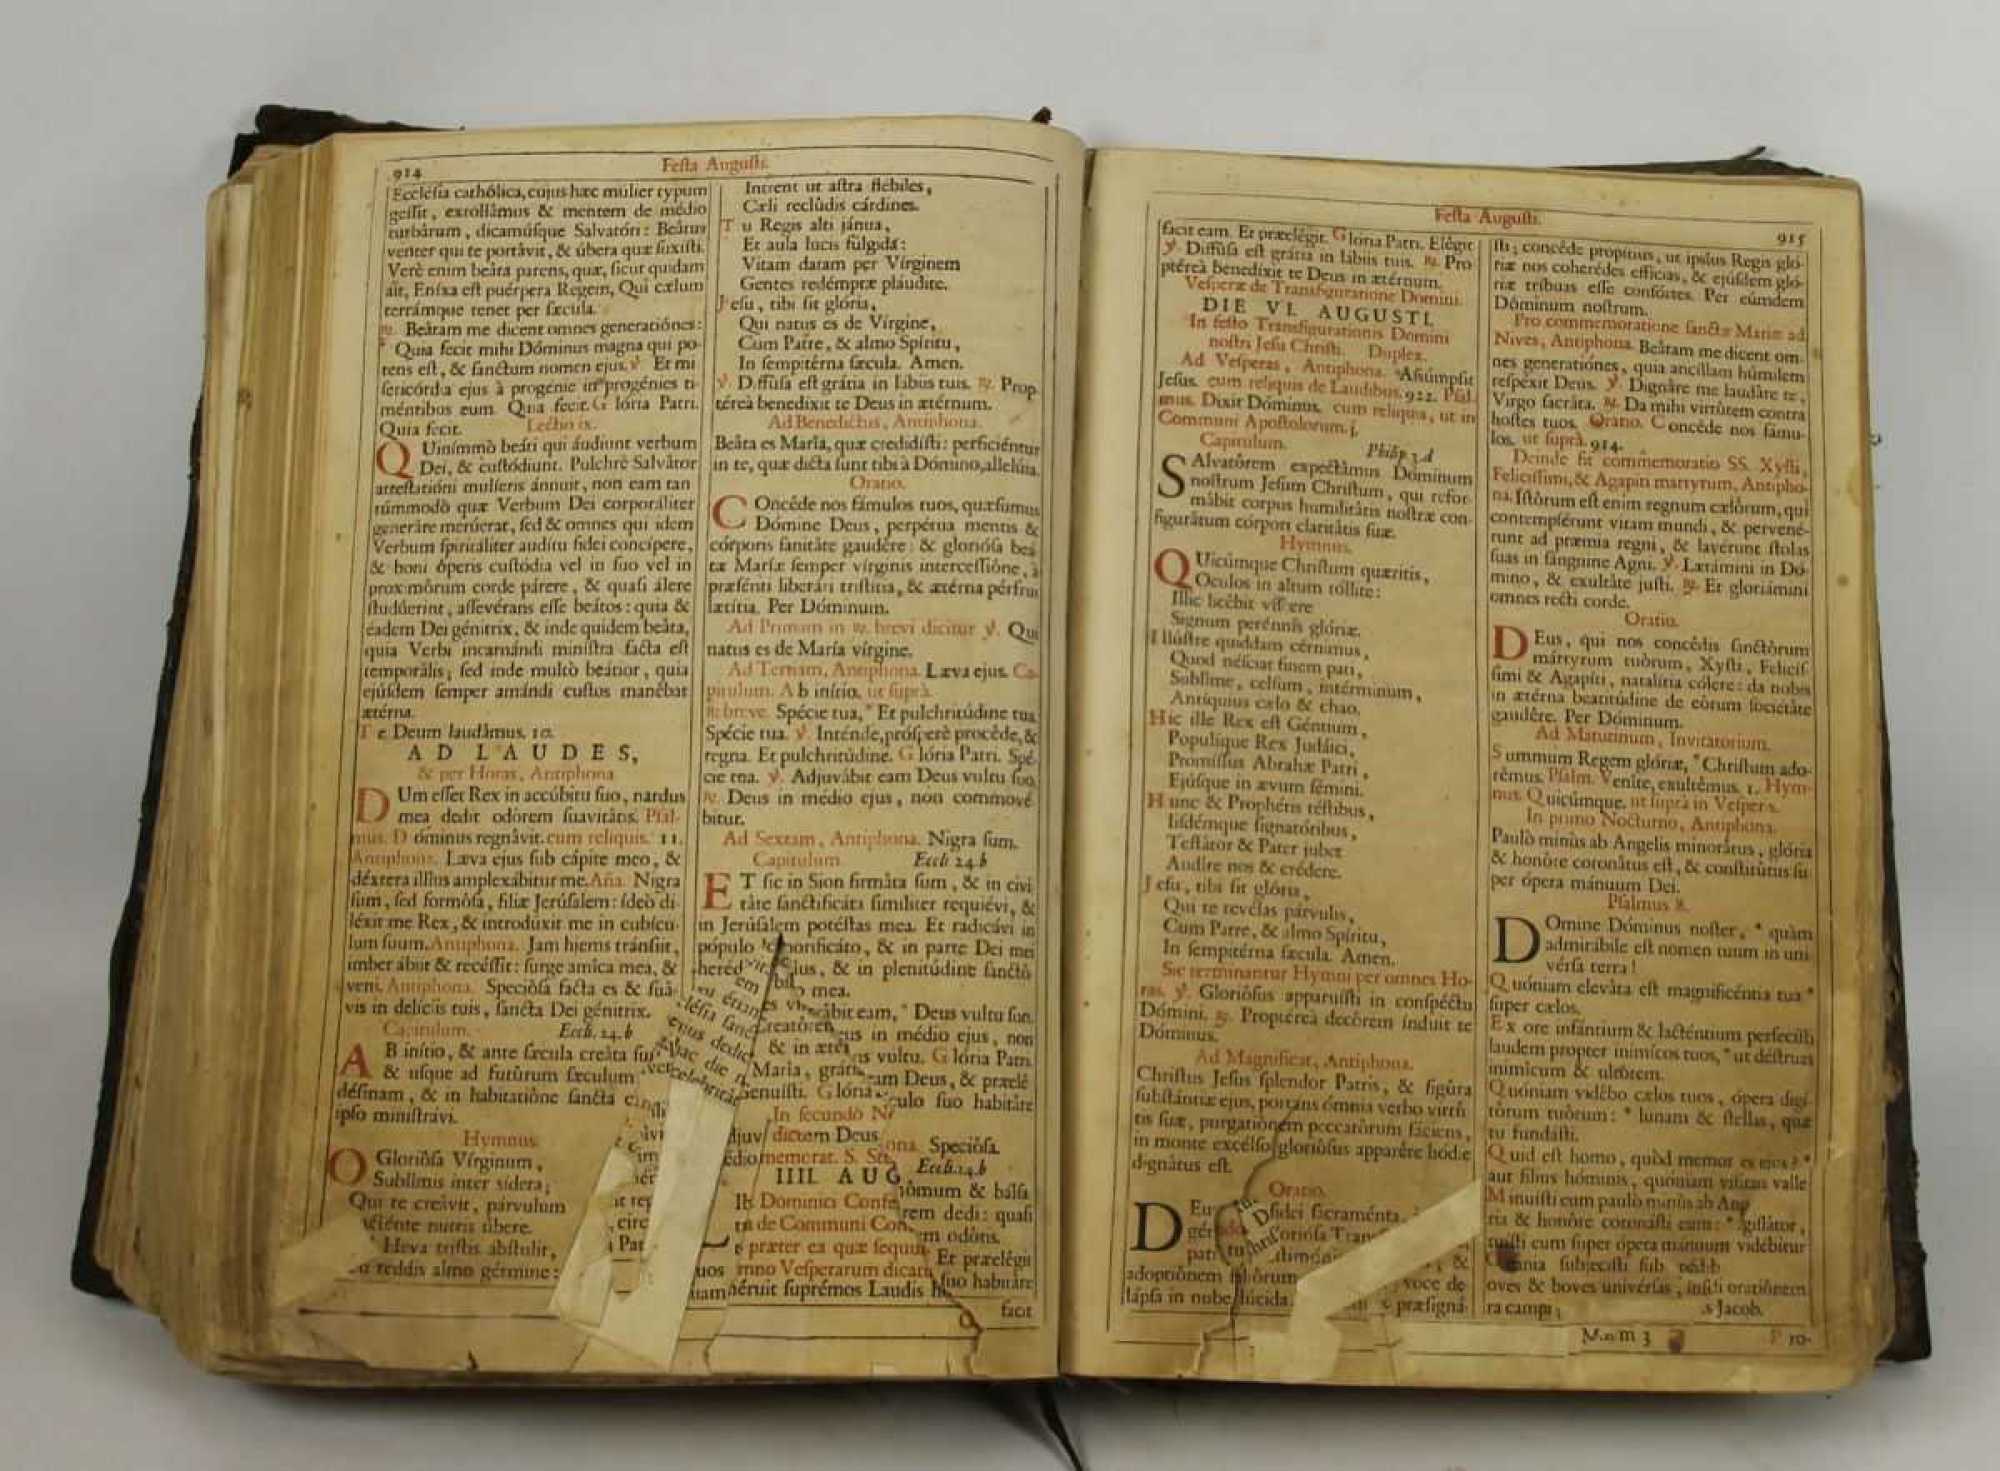 914
Festa Augusti.
Ecclésia cathólica, cujus hæc múlier typum
gessit, extollâmus & mentem de médio
turbárum, dicamúsque Salvatóri: Beátus
venter qui te portâvit, & úbera quæ suxísti.
Verè enim beáta parens, quæ, sicut quidam
ait, Eníxa est puérpera Regem, Qui cælum
terrámque tenet per sæcula.
℟. Beátam me dicent omnes generatiónes:
* Quia fecit mihi Dóminus magna qui po-
tens est, & sanctum nomen ejus. ℣. Et mi
sericórdia ejus à progénie in progénies ti-
méntibus eum. Quia fecit. Glória Patri.
Quia fecit. Lectio ix.
QUinímmò beáti qui áudiunt verbum
Dei, & custódiunt. Pulchrè Salvâtor
attestatióni mulíeris ánnuit, non eam tan
túmmodò quæ Verbum Dei corporáliter
generâre merúerat, sed & omnes qui idem
Verbum spirituáliter audítu fidei concípere,
& boni óperis custódia vel in suo vel in
proximórum corde párere, & quasi álere
studúerint, assevérans esse beátos: quia &
eadem Dei génitrix, & inde quidem beáta,
quia Verbi incarnándi minístra facta est
temporális; sed inde multò beátior, quia
ejúsdem semper amándi custos manêbat
ætérna.
Te Deum laudâmus. 10.
AD LAUDES,
& per Horas, Antiphona
DUm esset Rex in accúbitu suo, nardus
mea dedit odôrem suavitâtis. Psal-
mus. Dóminus regnâvit. cum reliquis. 11.
Antiphona. Læva ejus sub cápite meo, &
déxtera illíus amplexâbitur me. Aña. Nigra
sum, sed formôsa, filiæ Jerúsalem: ídeò di-
léxit me Rex, & introdúxit me in cubícu-
lum suum. Antiphona. Jam hiems tránsiit,
imber ábiit & recéssit: surge amíca mea, &
veni. Antiphona. Speciôsa facta es & suâ-
vis in delíciis tuis, sancta Dei génitrix.
Capitulum. Eccli. 24. b
AB inítio, & ante sæcula creâta sum
& usque ad futûrum sæculum
désinam, & in habitatióne sancta
ipso ministrávi.
Hymnus
O Gloriôsa Vírginum,
Sublímis inter sídera;
Qui te creâvit, párvulum
nutris úbere.
Heva tristis ábstulit,
reddis almo gérmine:
Intrent ut astra flébiles,
Cæli reclûdis cárdines.
Tu Regis alti jánua,
Et aula lucis fúlgida:
Vitam datam per Vírginem
Gentes redémptæ pláudite.
Jesu, tibi sit glória,
Qui natus es de Vírgine,
Cum Patre, & almo Spíritu,
In sempitérna sæcula. Amen.
℣. Diffûsa est grátia in lábiis tuis. ℟. Prop
téreà benedíxit te Deus in ætérnum.
Ad Benedictus, Antiphona.
Beáta es María, quæ credidísti: perficiéntur
in te, quæ dicta sunt tibi à Dómino, allelúia.
Oratio.
COncéde nos fámulos tuos, quæsumus
Dómine Deus, perpétua mentis &
córporis sanitâte gaudêre: & gloriósa beá
tæ Maríæ semper vírginis intercessióne, à
præsénti liberâri tristítia, & ætérna pérfrui
lætítia. Per Dóminum.
Ad Primam in ℟. brevi dicitur ℣. Qui
natus es de María vírgine.
Ad Tertiam, Antiphona. Læva ejus. Ca-
pitulum. Ab inítio, ut suprà.
℟. breve. Spécie tua, * Et pulchritúdine tua.
Spécie tua. ℣. Inténde, próspere procéde, &
regna. Et pulchritúdine. Glória Patri. Spé-
cie tua. ℣. Adjuvâbit eam Deus vultu suo.
℟. Deus in médio ejus, non commové
bitur.
Ad Sextam, Antiphona. Nigra sum.
Capitulum. Eccli 24. b
ET sic in Sion firmâta sum, & in civi
tâte sanctificâta simíliter requiévi, &
in Jerúsalem potéstas mea. Et radicávi in
pópulo honorificáto, & in parte Dei mei
heréd & in plenitúdine sanctô
mea.
eam, * Deus vultu suo.
in médio ejus, non
vultu. Glória Patri.
eam Deus, & prælé
suo habitâre
Speciôsa.
Eccli. 24. b
& bálsa
rem dedi: quasi
odóris.
Et præelégit
suo habitáre
IIII. AUG
Dominici Confe
de Communi Con
præter ea quæ sequun
Vesperarum dicatu
supremos Laudis
facit
Festa Augusti.
915
facit eam. Et præelégit. Glória Patri. Elégit
℣. Diffûsa est grátia in lábiis tuis. ℟. Pro
ptéreà benedíxit te Deus in ætérnum.
Vesperæ de Transfiguratione Domini.
DIE VI. AUGUSTI.
In festo Transfigurationis Domini
nostri Jesu Christi. Duplex.
Ad Vesperas, Antiphona. Assúmpsit
Jesus. cum reliquis de Laudibus. 922. Psal.
mus. Dixit Dóminus. cum reliquis, ut in
Communi Apostolorum. j.
Capitulum. Philip. 3. d
SAlvatôrem expectâmus Dóminum
nostrum Jesum Christum, qui refor
mâbit corpus humilitâtis nostræ con-
figurâtum córpori claritâtis suæ.
Hymnus.
QUicûmque Christum quæritis,
Oculos in altum tóllite:
Illic licêbit vísere
Signum perénnis glóriæ.
Illústre quiddam cérnimus,
Quod nésciat finem pati,
Sublîme, celsum, intérminum,
Antíquius cælo & chao.
Hic ille Rex est Géntium,
Populíque Rex Judáici,
Promíssus Abrahæ Patri,
Ejúsque in ævum sémini.
Hunc & Prophétis téstibus,
Iisdémque signatóribus,
Testâtor & Pater jubet
Audíre nos & crédere.
Jesu, tibi sit glória,
Qui te revélas párvulis,
Cum Patre, & almo Spíritu,
In sempitérna sæcula. Amen.
Sic terminantur Hymni per omnes Ho-
ras. ℣. Gloriôsus apparuísti in conspéctu
Dómini. ℟. Proptéreà decôrem índuit te
Dóminus.
Ad Magnificat, Antiphona.
Christus Jesus splendor Patris, & figûra
substántiæ ejus, portans ómnia verbo virtû
tis suæ, purgatiónem peccatórum fáciens,
in monte excélso gloriôsus apparêre hódie
dignâtus est.
Oratio.
fidei sacraménta
adoptiónem filiórum
lápsa in nube lúcida præsigná-
sti; concéde propítius, ut ipsíus Regis gló-
riæ nos coherédes effícias, & ejúsdem gló-
riæ tríbuas esse consórtes. Per eúmdem
Dóminum nostrum.
Pro commemoratione sanctæ Mariæ ad
Nives, Antiphona. Beátam me dicent om-
nes generatiónes, quia ancíllam húmilem
respéxit Deus. ℣. Dignâre me laudáre te,
Virgo sacráta. ℟. Da mihi virtûtem contra
hostes tuos. Oratio. Concéde nos fámu-
los. ut suprà. 914.
Deinde fit commemoratio SS. Xysti,
Felicissimi, & Agapiti martyrum, Antipho-
na. Istórum est enim regnum cælôrum, qui
contempsérunt vitam mundi, & pervené-
runt ad præmia regni, & lavérunt stolas
suas in sánguine Agni. ℣. Lætámini in Dó-
mino, & exultâte justi. ℟. Et gloriámini
omnes recti corde.
Oratio.
DEus, qui nos concédis sanctôrum
mártyrum tuórum, Xysti, Felicís-
simi & Agapíti, natalítia cólere: da nobis
in ætérna beatitúdine de eórum societâte
gaudêre. Per Dóminum.
Ad Matutinum, Invitatorium.
Summum Regem glóriæ, * Christum ado-
rêmus. Psalm. Venite, exultémus. 1. Hym-
nus. Quicúmque. ut suprà in Vesperis.
In primo Nocturno, Antiphona.
Paulò minùs ab Angelis minorátus, glória
& honôre coronâtus est, & constitútus su
per ópera mánuum Dei.
Psalmus 8.
DOmine Dóminus noster, * quàm
admirábile est nomen tuum in uni-
vérsa terra!
Quóniam elevâta est magnificéntia tua *
super cælos.
Ex ore infántium & lacténtium perfecísti
laudem propter inimícos tuos, * ut déstruas
inimícum & ultórem.
Quóniam vidêbo cælos tuos, ópera digi-
tôrum tuôrum: * lunam & stellas, quæ
tu fundásti.
Quid est homo, quòd memor es ejus? *
aut fílius hóminis, quóniam vísitas
Minuísti eum paulò minùs ab Ang
ria & honôre coronásti eum: *
tuísti eum super ópera mánuum
ómnia subjecísti sub
oves & boves univérsas, ínsuper
ra campi;
s Jacob.
Mmm 3